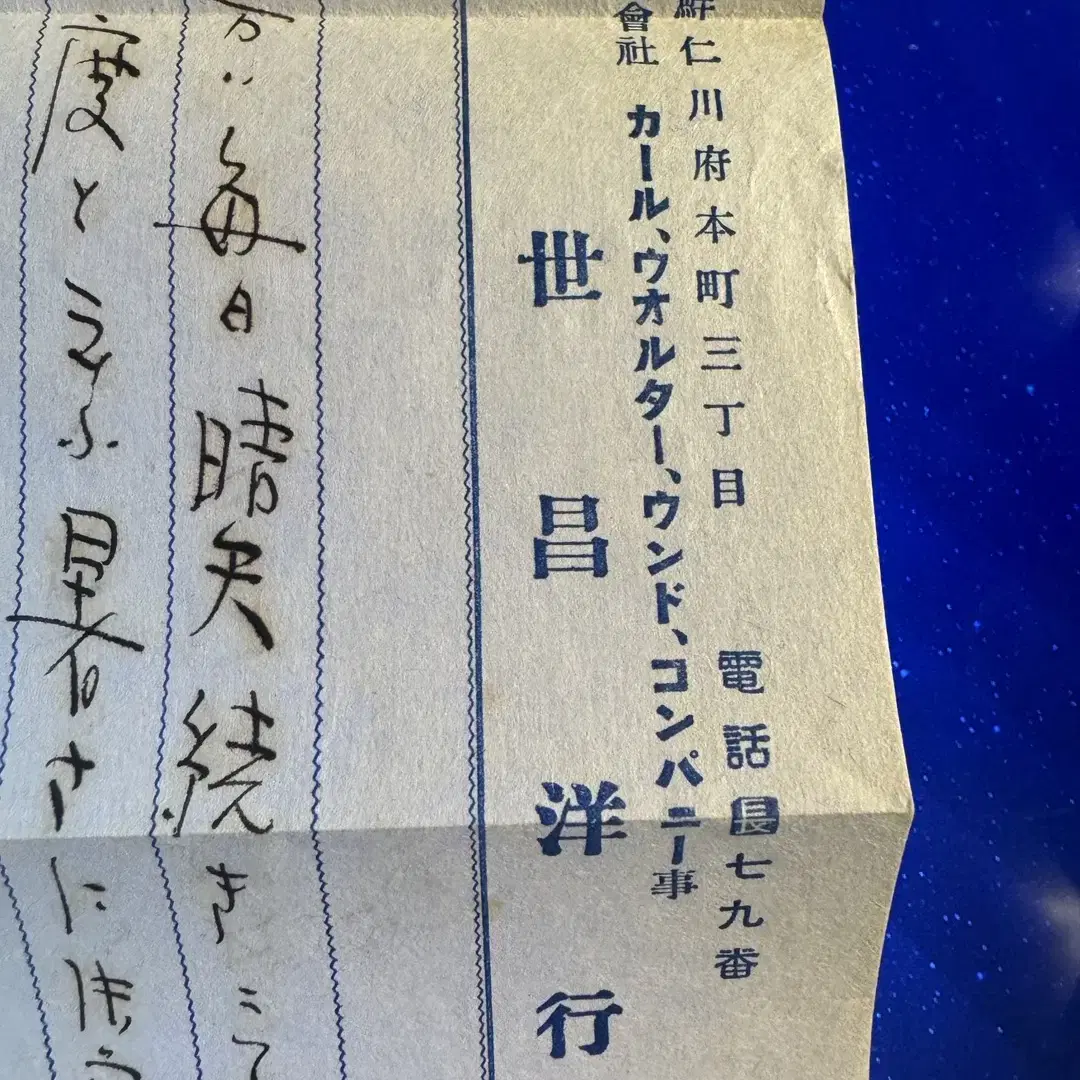 鮮仁川府本町三丁目 電話長七九番
會社 カール、ウオルター、ウンド、コンパニー事
世昌洋行
毎日晴天続き三
度と云ふ暑さに